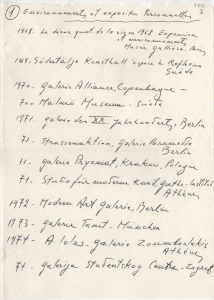 1 Environnements et expositions Personnelles
1968. Le dixer quart de la vigne 1968 Expression
environnements,
Musée galliera, Paris
1969. Södertälje Konsthall
Suède
1970 - galerie Alliance, Copenhague -
70 - Malmö Museum - Suède
1971. galerie des XX Jahrhundert, Berlin
71 - Strassenaktion, galerie Paramedia
Berlin
71 - galerie Pryzmat, Krakow, Pologne
71. Studio für moderne Kunst, gœthe-Institut
Athènes
1972 - Modern Art Galerie, Berlin
1973 - galerie Tanit - München
1974 - A. Iolas. galerie Zoumboulakis
Athènes
74 - galerija Studentskog Centra - Zagreb